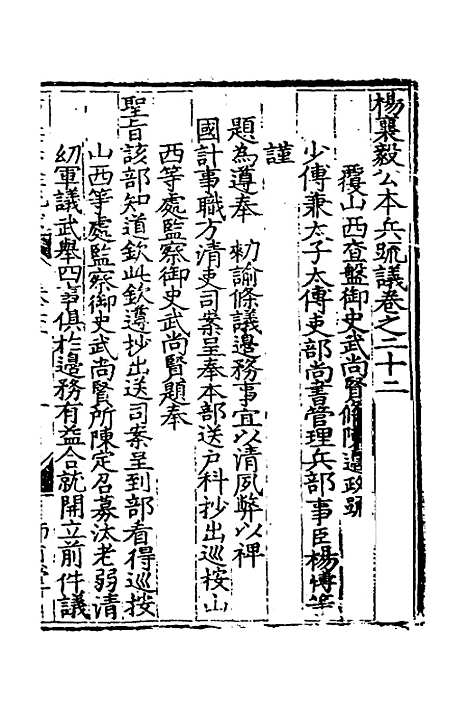 楊襄毅公本兵疏議卷之二十二
覆山西查盤御史武尚賢條陳邊政疏
少傅兼太子太傅吏部尚書管理兵部事臣楊博等
謹
題為遵奉　勑諭條議邊務事宜以清夙弊以裨
國計事職方清吏司案呈奉本部送戶科抄出巡按山
西等處監察御史武尚賢題奉
聖旨該部知道欽此欽遵抄出送司案呈到部看得巡按
山西等處監察御史武尚賢所陳定召募汰老弱清
幼軍議武舉四事俱於邊務有益合就開立前件議